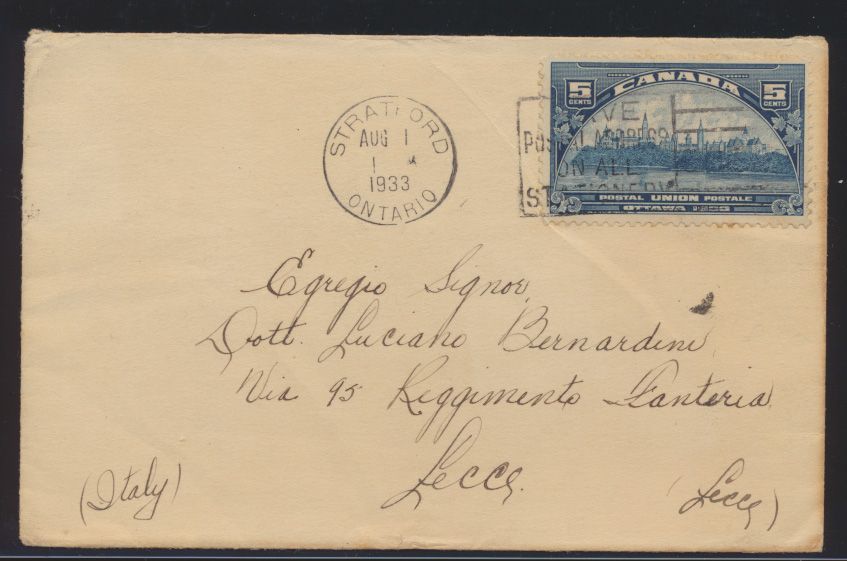 STRATFORD
AUG 1
1
1933
ONTARIO
5 CANADA 5
CENTS CENTS
VE
POSTAL ADDRESS
ON ALL
STATIONERY
POSTAL UNION POSTALE
OTTAWA 1933
Egregio Signor
Dott. Luciano Bernardini
Via 95 Reggimento Fanteria
Lecce.
(Italy) (Lecce)